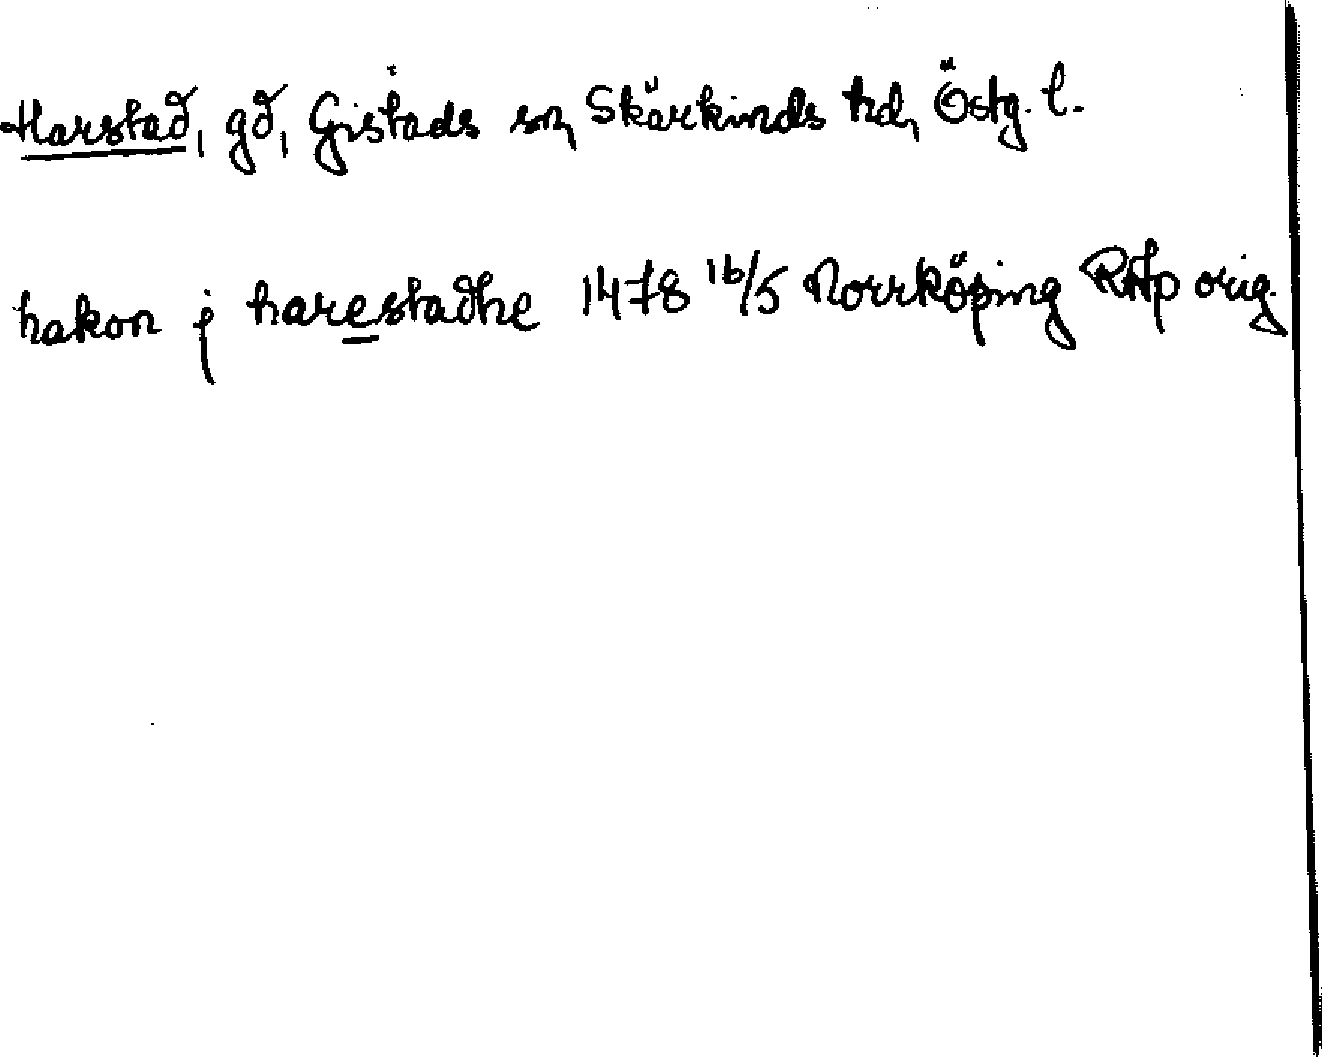 Harstad, gd, Gistads sn, Skärkinds hd, Östg. l.
hakon j harestadhe 1478 16/5 Norrköping RAp orig.